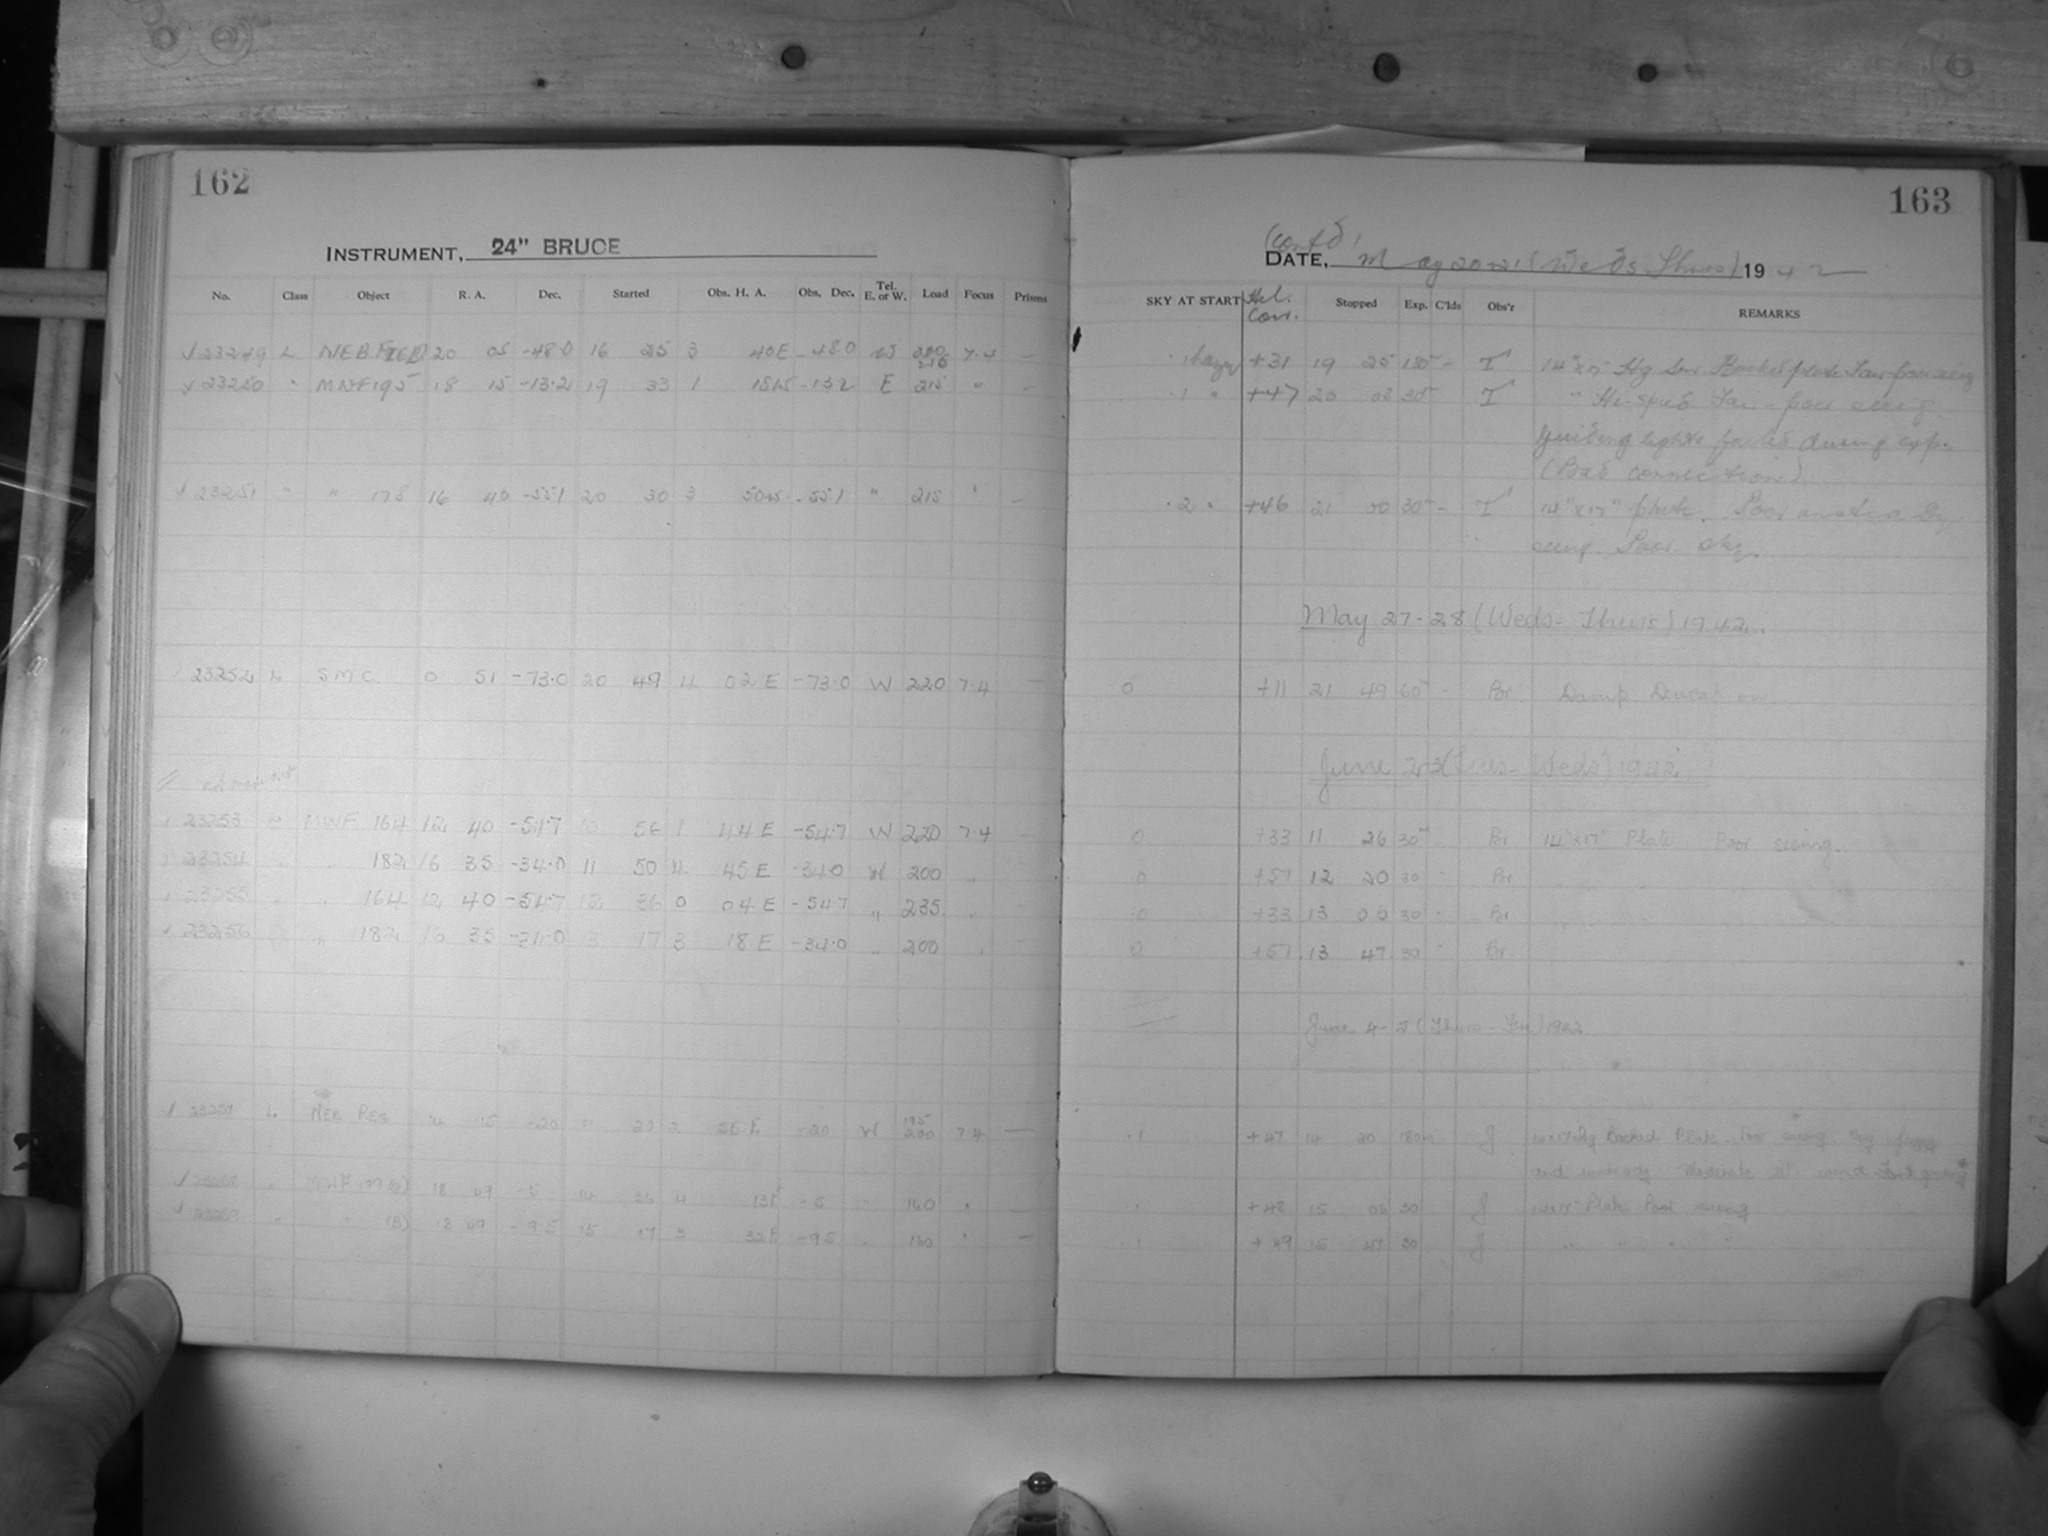 162
INSTRUMENT, 24" BRUCE
No. Class Object R. A. Dec. Started Obs. H. A. Obs. Dec. Tel. E. or W. Load Focus Prisms
23249 L NEB FIELD 20 05 -48.0 16 25 3 40E -48.0 W 200 210 7.4 -
23250 " MWF 195 18 15 -13.2 19 33 1 E 215 " -
23251 " " 178 16 40 -55.1 20 30 3 -55.1 " 215 " -
23252 L SMC 0 51 -73.0 20 49 4 02 E -73.0 W 220 7.4 -
23253 L MWF 164 12 40 -54.7 10 56 1 44 E -54.7 W 220 7.4 -
23254 " " 182 16 35 -34.0 11 50 4 45 E -34.0 W 200 "
23255 " " 164 12 40 -54.7 12 36 0 04 E -54.7 " 235 "
23256 " " 182 16 35 -34.0 13 17 3 18 E -34.0 " 200 "
23257 L NEB REG 15 -20 11 20 2 56 E -20 W 195 200 7.4 -
23258 " MWF 18 49 -5 14 36 4 13E -5 " 160 " -
23259 " " (B) 18 49 -9.5 15 17 3 32E -9.5 " 160 " -
163
(Cont'd)
DATE, May 20-21 (Weds Thurs) 1942
SKY AT START Hel. Corr. Stopped Exp. C'lds Obs'r REMARKS
1 hazy +31 19 25 180 - T 14"x17" Hg Sen. Backed plate Fair-poor seeing
1 " +47 20 03 30 T " Hi-speed Fair-poor seeing.
Guiding lights failed during exp.
(Bad connection)
2 " +46 21 00 30 - T 14"x17" plate. Poor unsteady
seeing. Poor sky.
May 27-28 (Weds-Thurs) 1942.
0 +11 21 49 60 - Br. Damp Dewcap on
June 2-3 (Tues-Weds) 1942
0 +33 11 26 30 Br. 14"x17" Plate Poor seeing.
0 +57 12 20 30 - Br
0 +33 13 06 30 - Br
0 +57 13 47 30 - Br.
June 4-5 (Thurs-Fri) 1942
1 +47 14 20 180 J 14x17 Hg Backed Plate. Poor seeing.
and unsteady Moderate
1 +48 15 06 30 J 14x17 Plate Poor seeing
1 +49 15 47 30 J " " " "